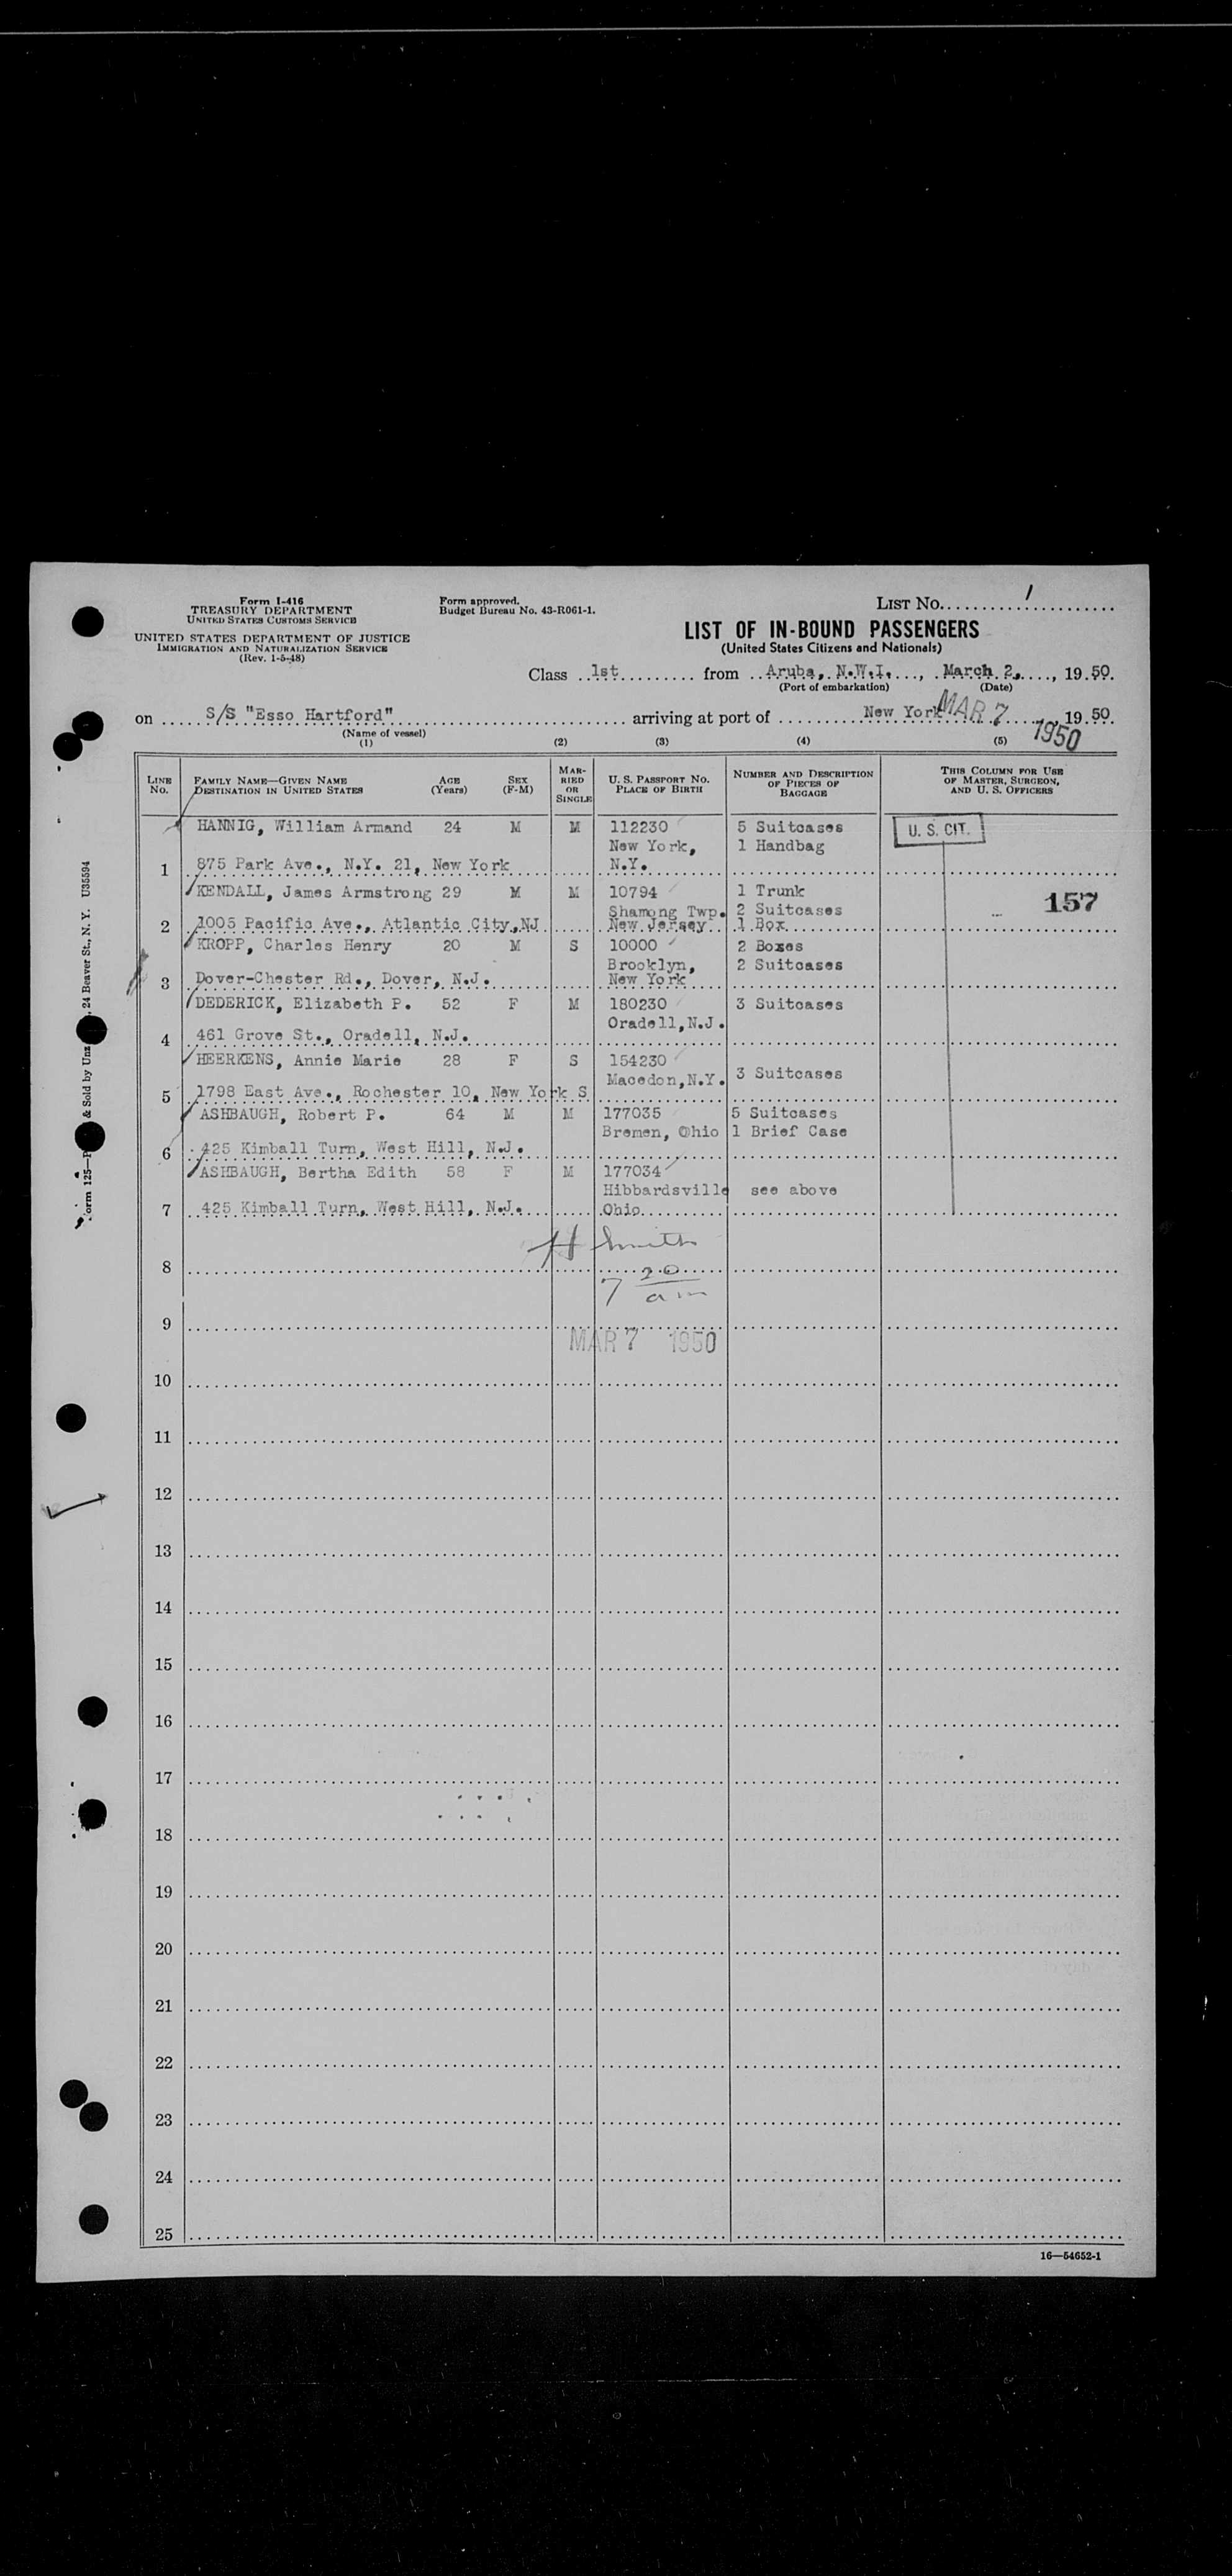 Form I-416
TREASURY DEPARTMENT
UNITED STATES CUSTOMS SERVICE
UNITED STATES DEPARTMENT OF JUSTICE
IMMIGRATION AND NATURALIZATION SERVICE
(Rev. 1-5-48)
Form approved.
Budget Bureau No. 43-R061-1.
LIST No. 1
LIST OF IN-BOUND PASSENGERS
(United States Citizens and Nationals)
Class 1st from Aruba, N.W.I., March 2, 1950.
(Port of embarkation) (Date)
on S/S "Esso Hartford" arriving at port of New York MAR 7 1950, 1950.
(Name of vessel)
(1) (2) (3) (4) (5)
LINE No. FAMILY NAME—GIVEN NAME DESTINATION IN UNITED STATES AGE (Years) SEX (F-M) MARRIED OR SINGLE U. S. PASSPORT No. PLACE OF BIRTH NUMBER AND DESCRIPTION OF PIECES OF BAGGAGE THIS COLUMN FOR USE OF MASTER, SURGEON, AND U. S. OFFICERS
HANNIG, William Armand 24 M M 112230 5 Suitcases U. S. CIT.
New York, 1 Handbag
1 875 Park Ave., N.Y. 21, New York N.Y.
KENDALL, James Armstrong 29 M M 10794 1 Trunk 157
Shamong Twp. 2 Suitcases
2 1005 Pacific Ave., Atlantic City, NJ New Jersey 1 Box
KROPP, Charles Henry 20 M S 10000 2 Boxes
Brooklyn, 2 Suitcases
3 Dover-Chester Rd., Dover, N.J. New York
DEDERICK, Elizabeth P. 52 F M 180230 3 Suitcases
Oradell, N.J.
4 461 Grove St., Oradell, N.J.
HEERKENS, Annie Marie 28 F S 154230
Macedon, N.Y. 3 Suitcases
5 1798 East Ave., Rochester 10, New York S
ASHBAUGH, Robert P. 64 M M 177035 5 Suitcases
Bremen, Ohio 1 Brief Case
6 425 Kimball Turn, West Hill, N.J.
ASHBAUGH, Bertha Edith 58 F M 177034
Hibbardsville see above
7 425 Kimball Turn, West Hill, N.J. Ohio
H Smith
8
7 20 am
9
MAR 7 1950
10
11
12
13
14
15
16
17
18
19
20
21
22
23
24
25
16—54652-1
& Sold by Unz , 24 Beaver St., N. Y. U35594